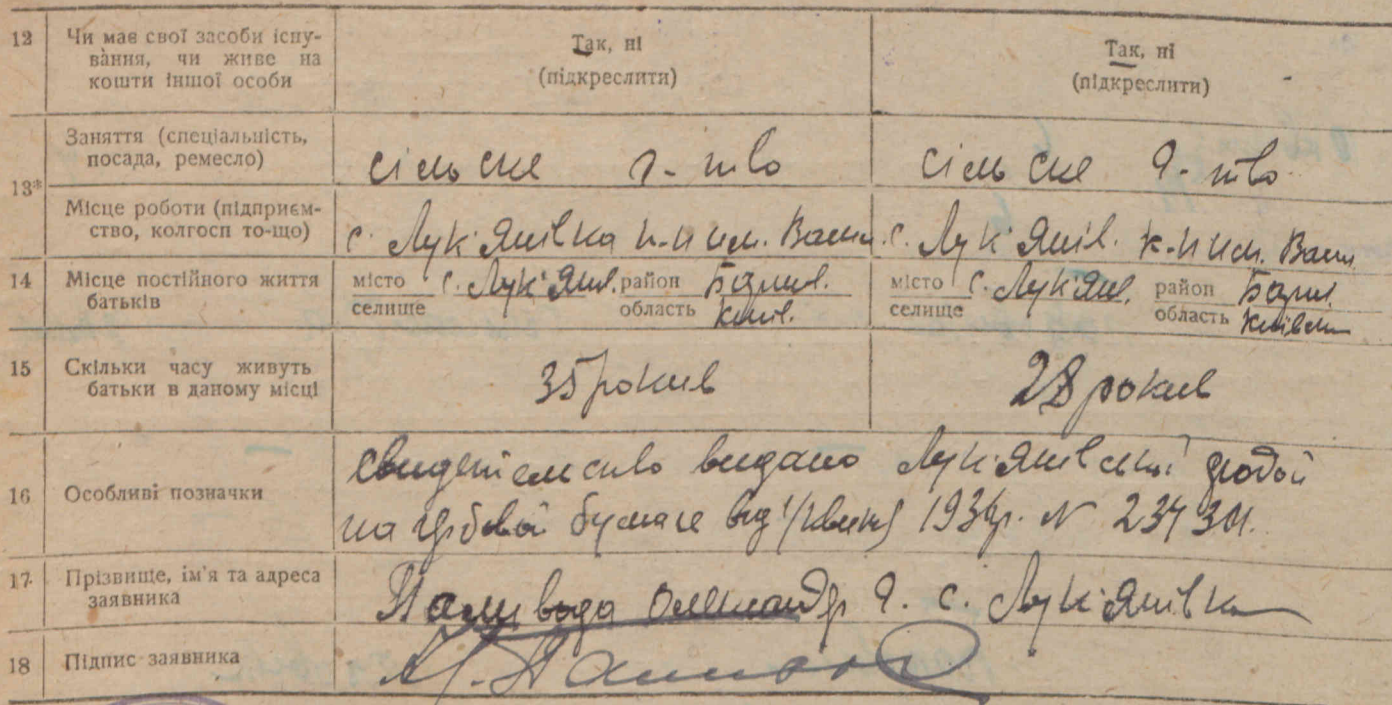 12 Чи має свої засоби існу-
вання, чи живе на
кошти іншої особи
Так, ні
(підкреслити)
Так, ні
(підкреслити)
13*
Заняття (спеціальність,
посада, ремесло)
сільске г-тво
сільске г-тво
Місце роботи (підприєм-
ство, колгосп то-що)
с. Лук'янівка
с. Лук'янів.
14 Місце постійного життя
батьків
місто с. Лук'янів. район Бариш.
селище область Київ.
місто с. Лук'янів. район Бариш.
селище область Київськ
15 Скільки часу живуть
батьки в даному місці
35 років
28 років
16 Особливі позначки
видано Лук'янівської
на бумаге від 193 р. №
17 Прізвище, ім'я та адреса
заявника
Паливода Олександр с. Лук'янівка
18 Підпис заявника